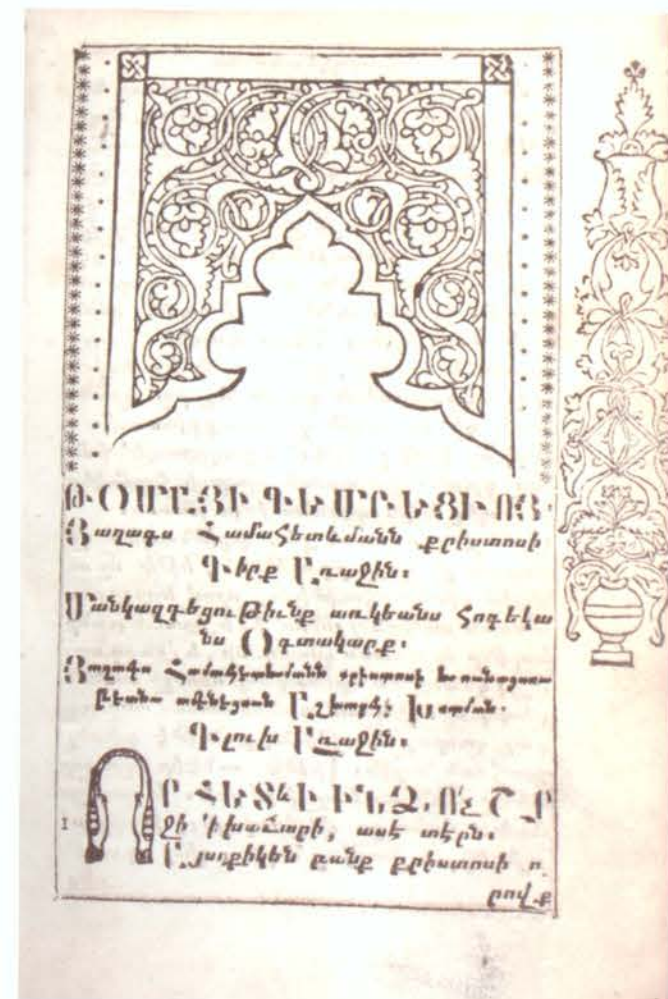 ԹՕՄԱՅԻ ԳԵՄԲԵՑԻՈՅ.
Յաղագս Համահետևմանն քրիստոսի
Գիրք Առաջին։
Մանկազգեցութիւնք առկեանս հոգեկա
նս Օգտակարք։
Յաղագս Համահետևմանն քրիստոսի և
Աշխարհէ Խոտման.
Գլուխ Առաջին։
ՈՐ ՀԵՏևԻ ԻՆՁ, Ո՛Չ ՇՐ
1 ջի 'ի խաւարի, ասէ տէրն։
Այսոքիկեն բանք քրիստոսի ո
րովք